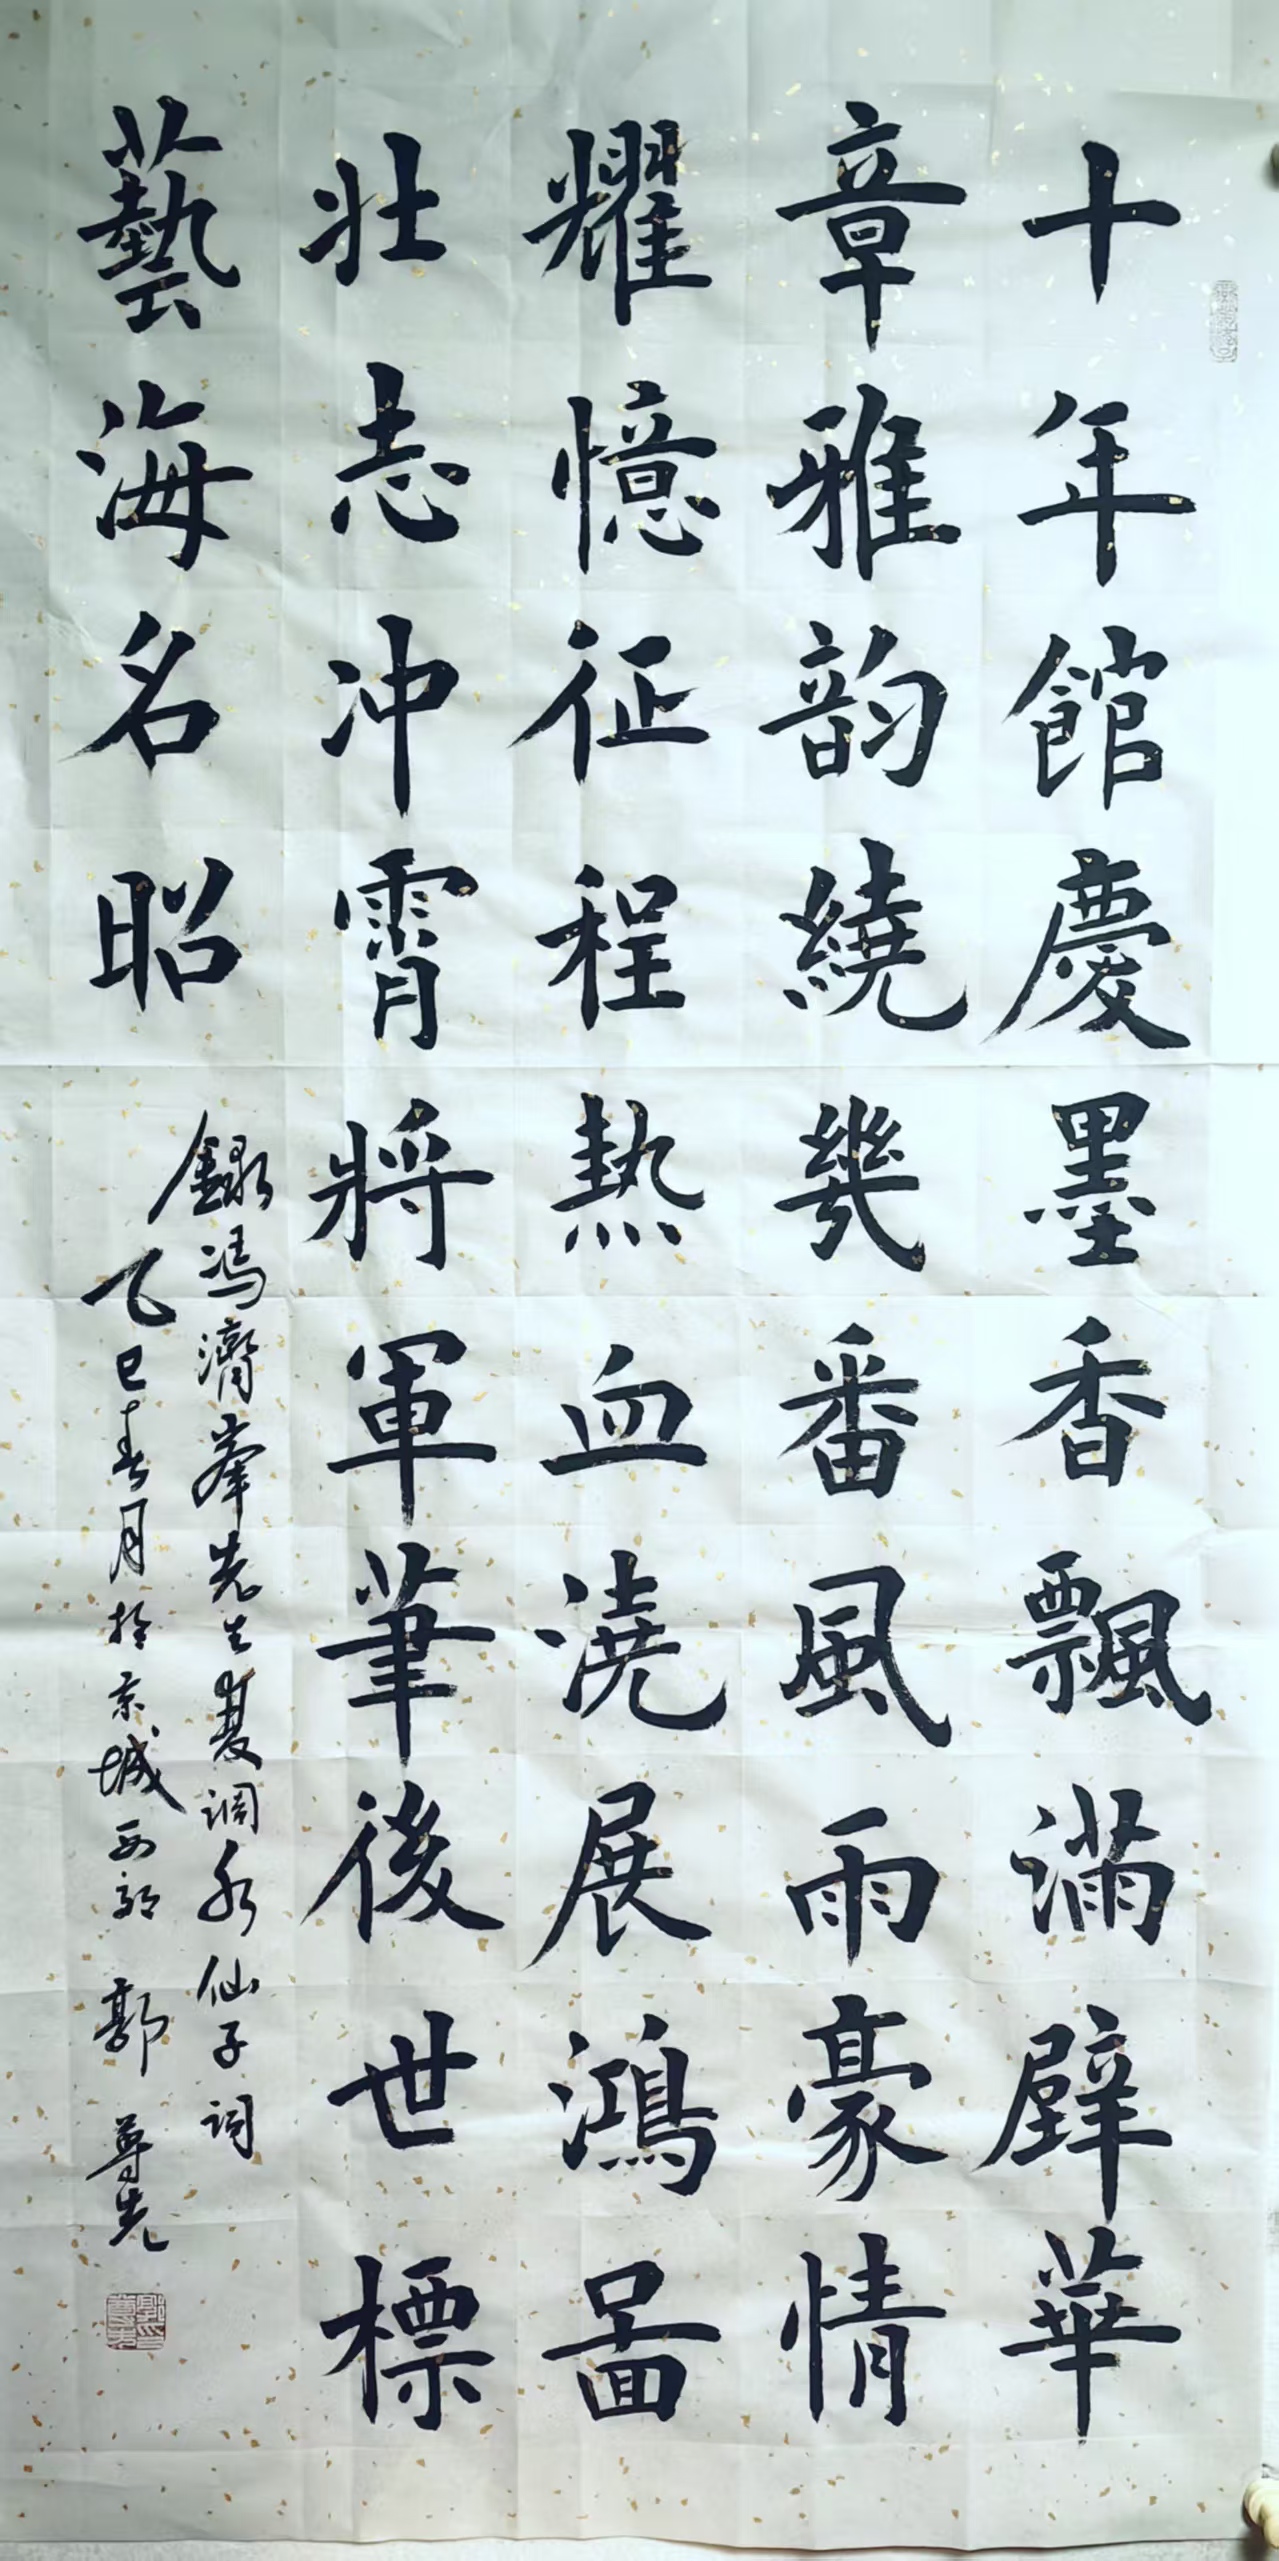 十年館慶墨香飄滿璧華
章雅韵繞幾番風雨豪情
耀憶征程熱血澆展鴻啚
壯志冲霄將軍筆後世標
藝海名昭
錄馮濟峯先生雙調水仙子詞
乙巳春月於京城西郊 郭尊先